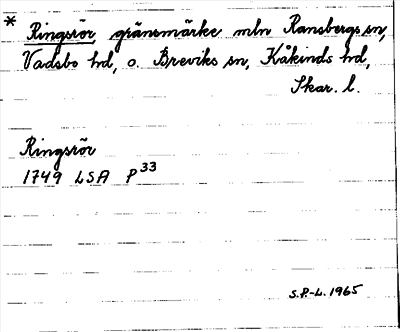 * Ringsrör gränsmärke mln Ransbergs sn,
Vadsbo hd, o. Breviks sn, Kåkinds hd,
Skar. l.
Ringsrör
1749 LSA P 33
S.P.-L. 1965